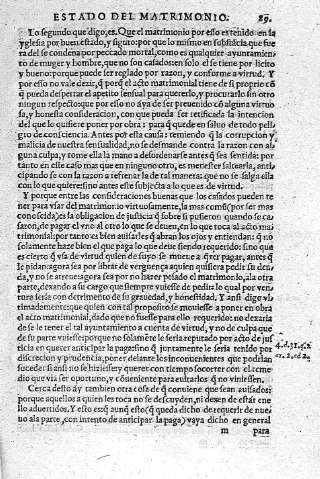 ESTADO DEL MATRIMONIO. 89.
Lo segundo que digo, es. Que el matrimonio por esso es tenido en la
yglesia por buen estado, y siguro: por que lo mismo en substancia que fue
ra del se condena por peccado mortal, como es qualquier ayuntamien-
to de muger y hombre, que no son casados: en solo el se tiene por licito
y bueno: porque puede ser reglado por razon, y conforme a virtud. Y
por esso no vale dezir, q̃ porq̃ el acto matrimonial tiene de si proprio cõ
q̃ pueda despertar el apetito sensual para quererlo, y procurarlo sin otro
ningun respecto: que por esso no aya de ser preuenido cõ alguna virtuo
sa, y honesta consideracion, con que pueda ser retificada la intencion
del que lo quisiere poner por obra: para q̃ quede en saluo de todo peli-
gro de consciencia. Antes por esta causa: temiendo q̃ la corrupcion y
malicia de nuestra sensualidad, no se desmande contra la razon con al-
guna culpa, y tome ella la mano a desordenarse antes q̃ sea sentida: por
tanto en este caso mas que en ninguno otro, es menester saltearla, anti-
cipando se con la razon a refrenarla de tal manera: que no se salga ella
con lo que quiere: sino antes este subjecta a lo que es de virtud.
Y porque entre las consideraciones buenas que los casados pueden te
ner para vsar del matrimonio virtuosamente, la mas comũ (y por ser mas
conoscida) es la obligacion de justicia q̃ sobre si pusieron quando se ca-
saron, de pagar el vno al otro lo que se deuen, en lo que toca al acto mat
rimonial: por tanto es bien auisarles q̃ abran los ojos y entiendan: q̃ no
solamente haze bien el que paga lo que deue siendo requerido: sino que
es cierto q̃ vsa de virtud quien de suyo se mueue a q̃rer pagar, antes q̃
le pidan: agora sea por librar de verguença a quien quisiera pedir su deu
da, y no se atreue: agora sea por no hazer pesado el matrimonio, a la otra
parte, dexando a su cargo que siempre viniesse de pedir a lo qual por ven-
tura seria con detrimento de su grauedad, y honestidad. Y ansi digo vl
timadamente: que quien con tal proposito se mouiesse a poner en obra
el acto matrimonial, dado que no fuesse para ello requerido: no dexaria
de se le tener el tal ayuntamiento a cuenta de virtud, y no de culpa que
de su parte vuiesse: porque no solamente le seria reputado por acto de jus
ticia en querer anticipar la paga: sino q̃ juntamente le seria tenido por
discrecion y prudencia, poner delante los inconuenientes que podrian
suceder: si ansi no se hiziesse: y querer con tiempo socorrer con el reme-
dio que via ser oportuno, y cõueniente para euitarlos q̃ no viniessen.
Cerca desto ay tambien otra cosa de q̃ conuiene que sean auisados:
porque aquellos a quien les toca no se descuyden, ni dexen de estar en e
llo aduertidos. Y esto es: q̃ aunq̃ esto (q̃ queda dicho de requerir de nue-
uo a la parte, con intento de anticipar la paga) vaya dicho en general
m para